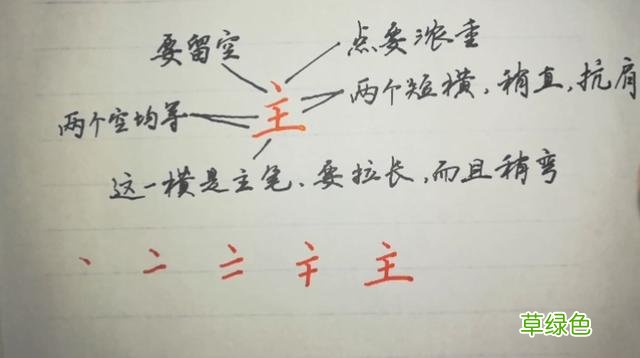 要留空
点要浓重
主
两个短横、稍直,抗肩
两个空均等
这一横是主笔、要拉长,而且稍弯
丶 二 三 主
草绿色